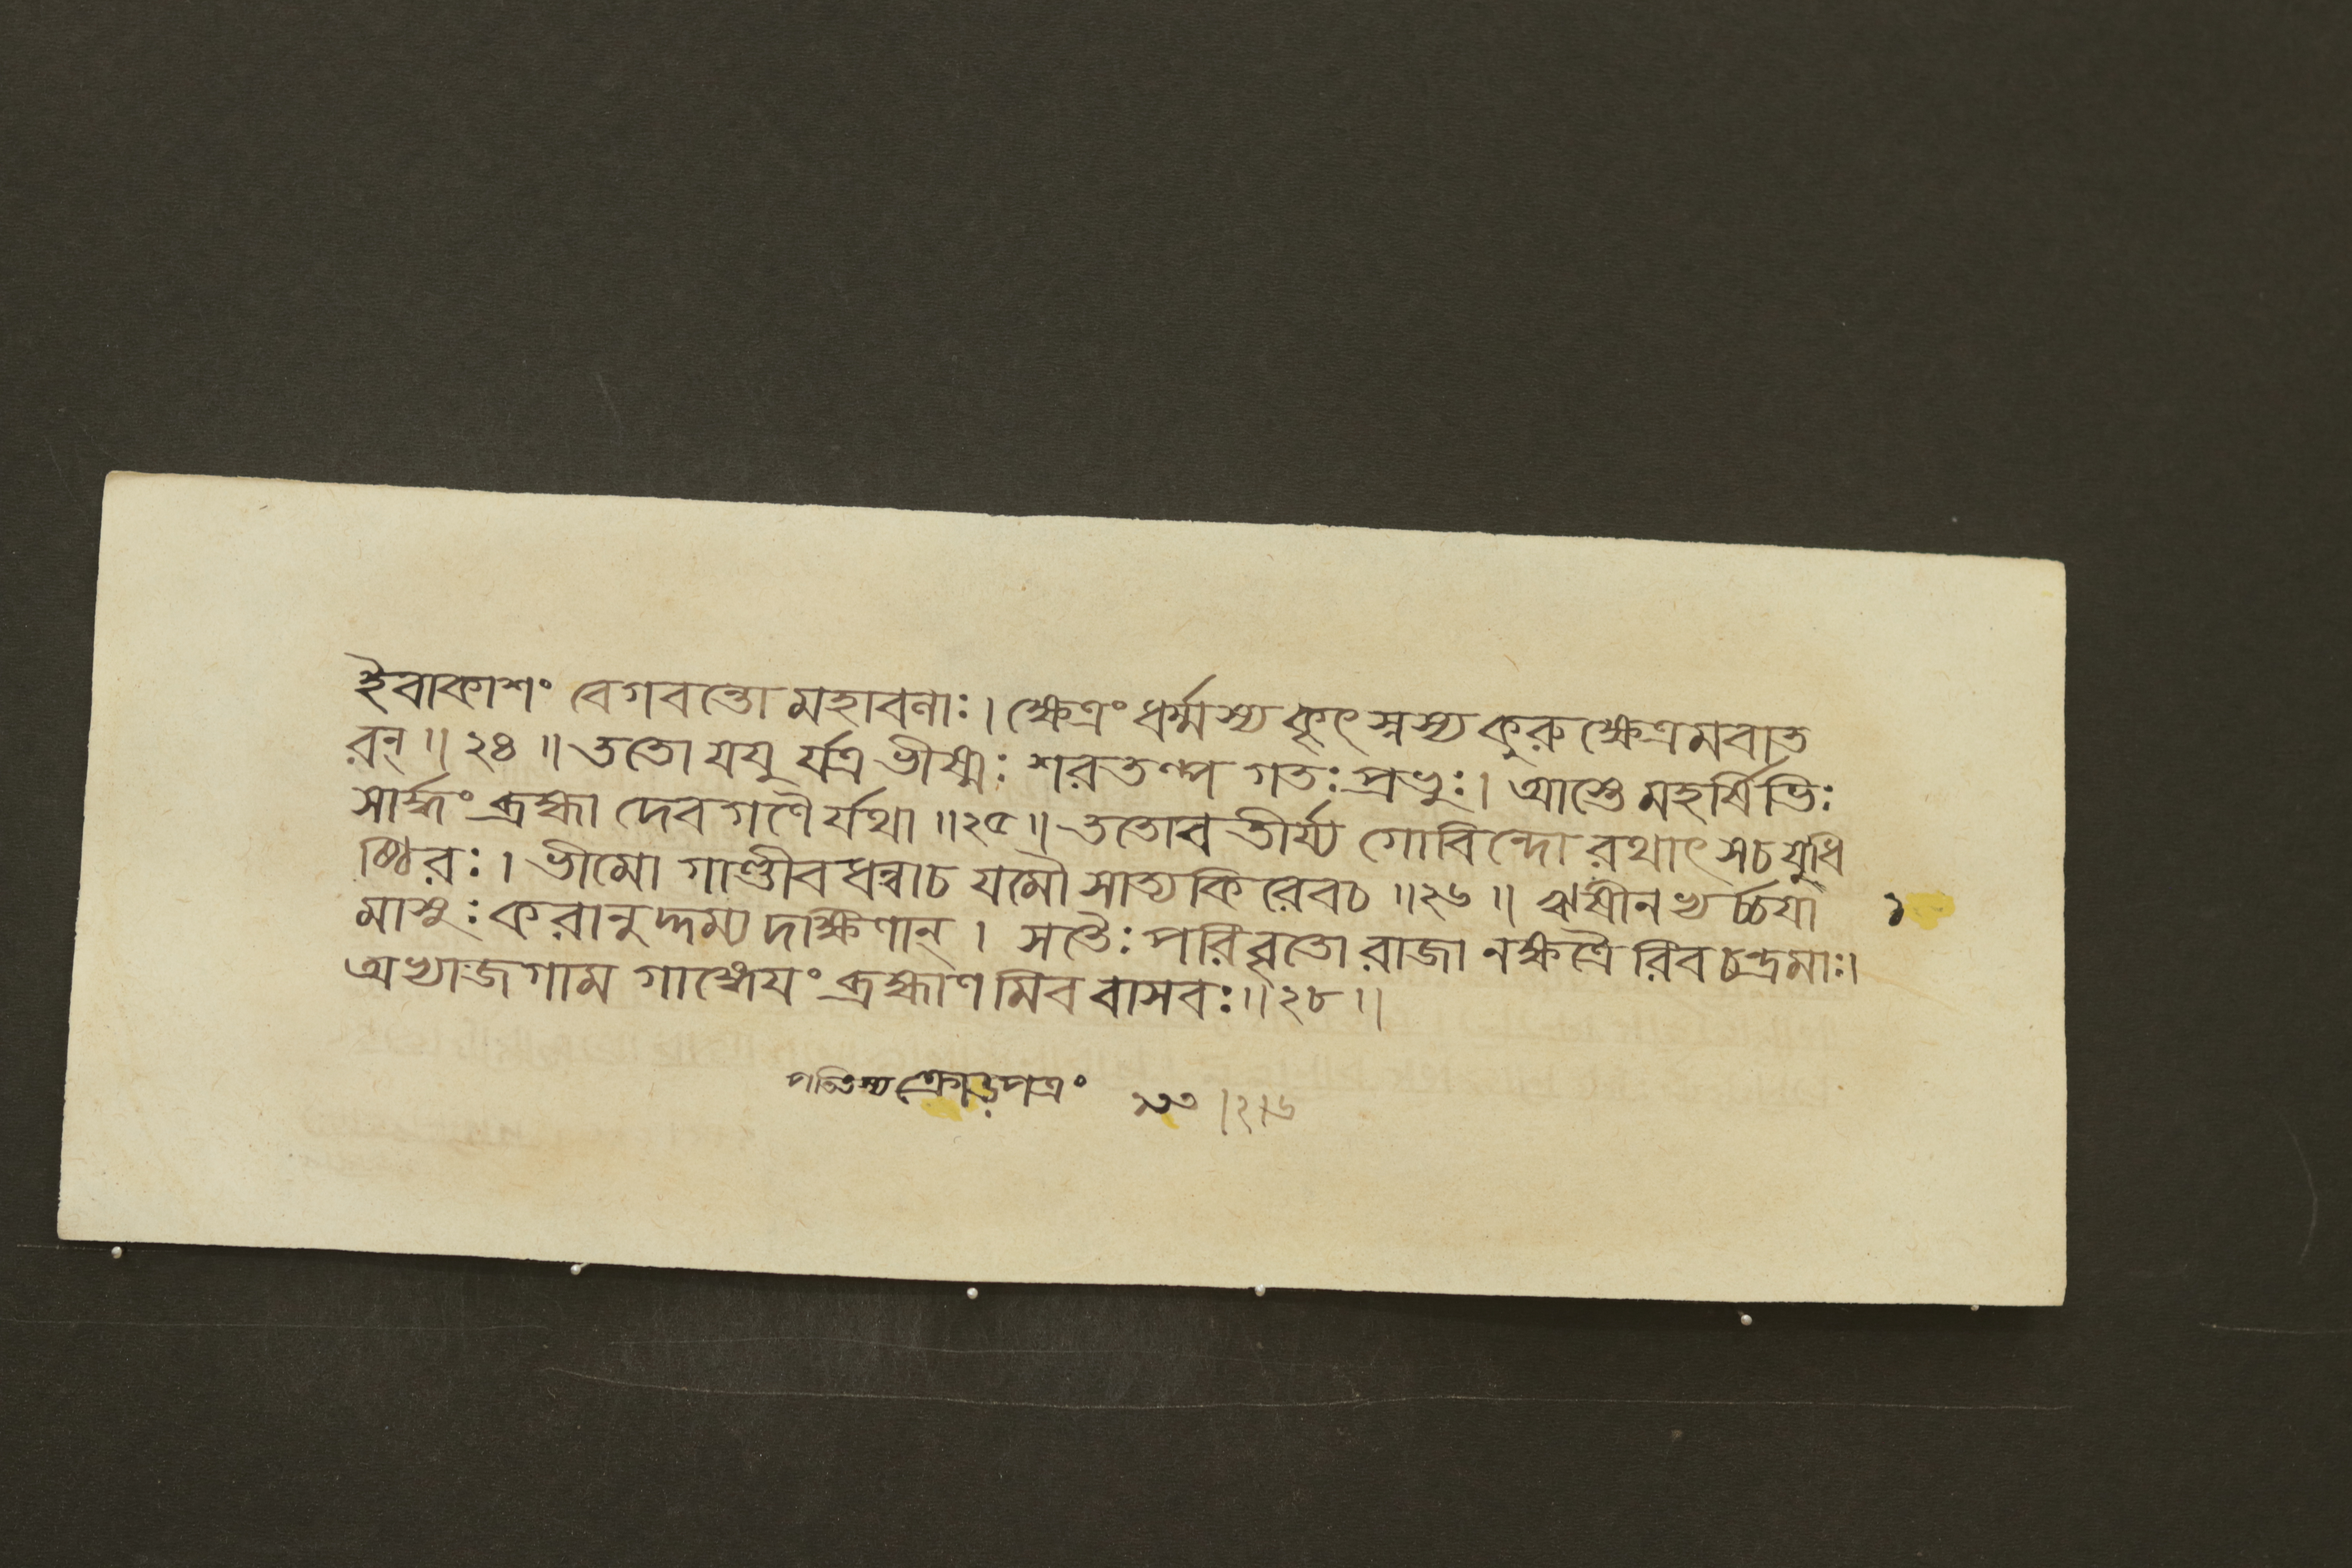 ইবাকাশং বেগবন্তো মহাবলাঃ। ক্ষেত্রং ধর্ম্মস্য কৃৎস্নস্য কুরুক্ষেত্রমবাত
রন্॥২৪॥ ততো যযু র্যত্র ভীষ্মঃ শরতল্প গতঃ প্রভুঃ। আস্তে মহর্ষিভিঃ
সার্দ্ধং ব্রহ্মা দেবগণৈ র্যথা॥২৫॥ ততোব তীর্য্য গোবিন্দো রথাৎ সচ যুধি
ষ্ঠিরঃ। ভীমো গাণ্ডীবধন্বাচ যমৌ সাত্যকি রেবচ॥২৬॥ ঋষীনভ্যর্চ্চয়া
মাসুঃ করানুদ্দম্য দক্ষিণান্। সতৈঃ পরিবৃতো রাজা নক্ষত্রৈ রিব চন্দ্রমাঃ।
অভ্যাজগাম গাঙ্গেয়ং ব্রহ্মাণ মিব বাসবঃ॥২৮॥
ক্রোড়পত্রং